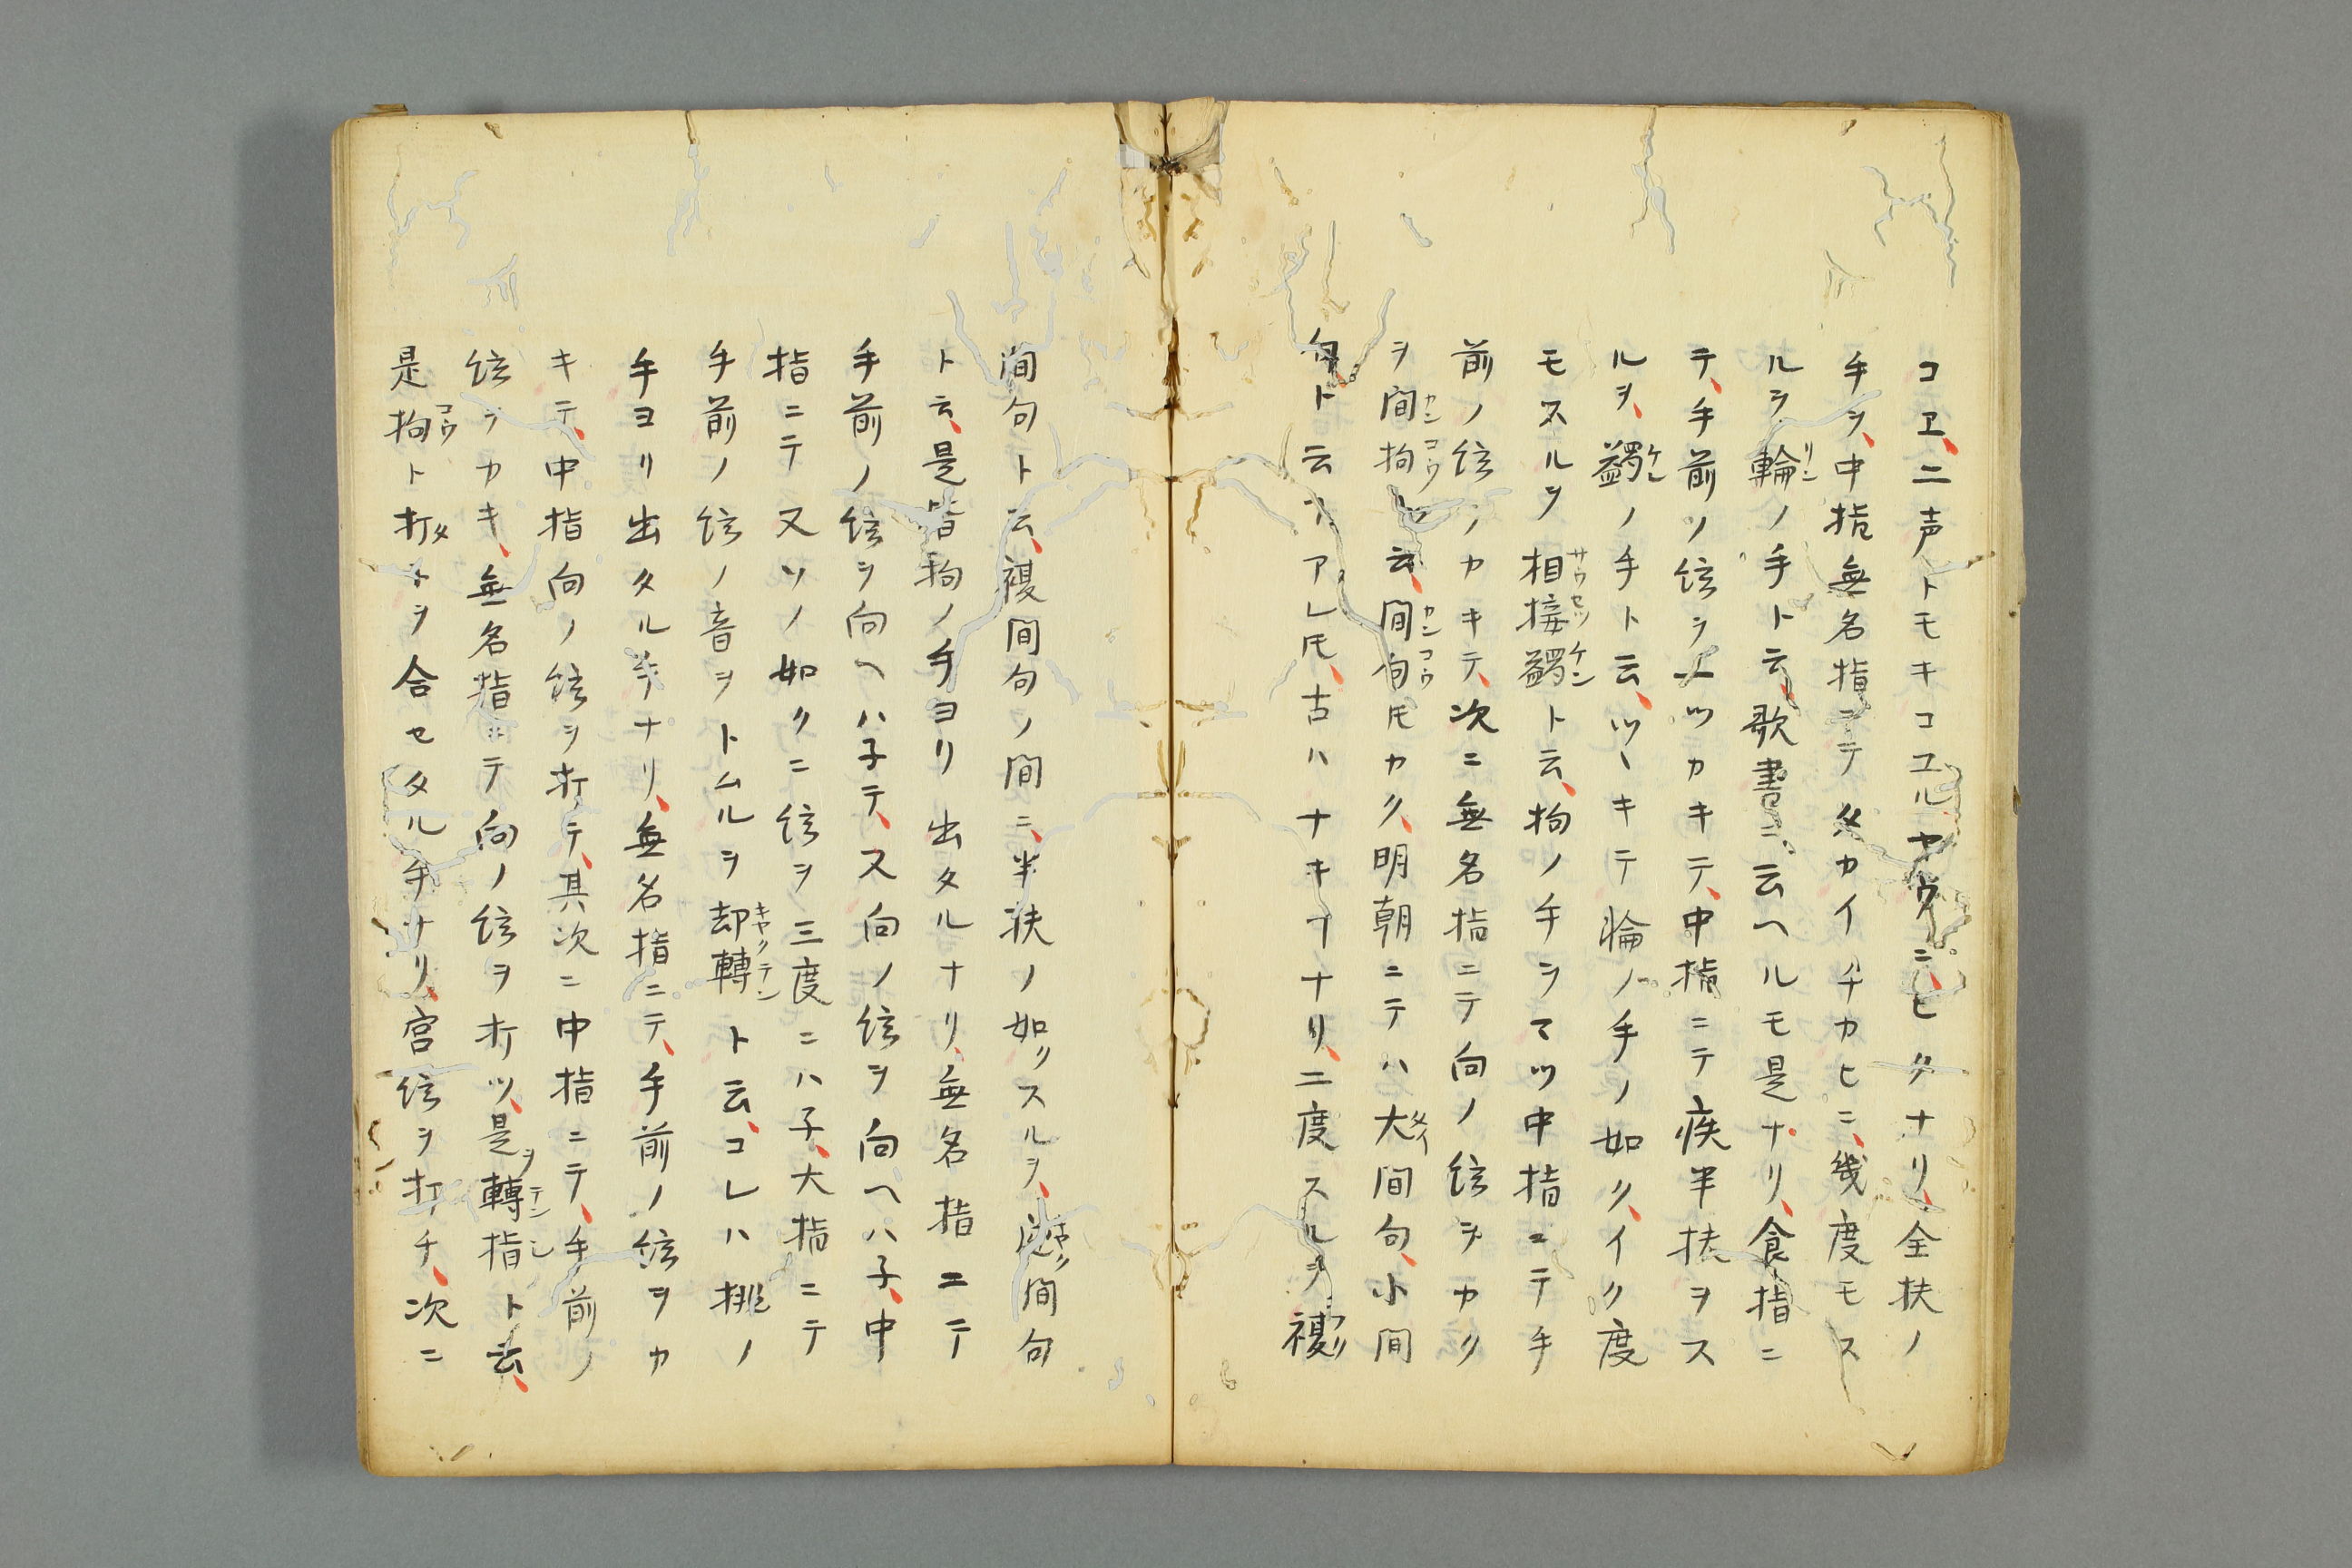 コヱ、二声トモキコユルヤウニ、ヒクナリ、全扶ノ
手ヲ、中指無名指ニテタカイチカヒニ、幾度モス
ルヲ輪ノ手ト云、歌書ニ云ヘルモ是ナリ、食指ニ
テ、手前ノ絃ヲ二ツカキテ、中指ニテ疾半扶ヲス
ルヲ、蠲ノ手ト云、ツヽキテ輪ノ手ノ如ク、イク度
モスルヲ相接蠲ト云、拘ノ手ヲマツ中指ニテ手
前ノ絃ヲカキテ、次ニ無名指ニテ向ノ絃ヲカク
ヲ間拘ト云、間句トモカク、明朝ニテハ大間句、小間
句ト云フアレトモ、古ハナキ𬼀ナリ、二度スルヲ複
間句ト云、複間句ノ間ニ、半扶ノ如クスルヲ、間句
ト云、是皆拘ノ手ヨリ出タルナリ、無名指ニテ
手前ノ絃ヲ向ヘハ子テ、又向ノ絃ヲ向ヘハ子、中
指ニテ又ソノ如クニ絃ヲ三度ニハ子、大指ニテ
手前ノ絃ノ音ヲトムルヲ却轉ト云、コレハ挑ノ
手ヨリ出タル手ナリ、無名指ニテ、手前ノ絃ヲカ
キテ、中指向ノ絃ヲ打テ、其次ニ中指ニテ、手前ノ
絃ヲカキ、無名指ニテ向ノ絃ヲ打ツ、是ヲ轉指ト云、
是拘ト打トヲ合セタル手ナリ、宮絃ヲ打チ、次ニ